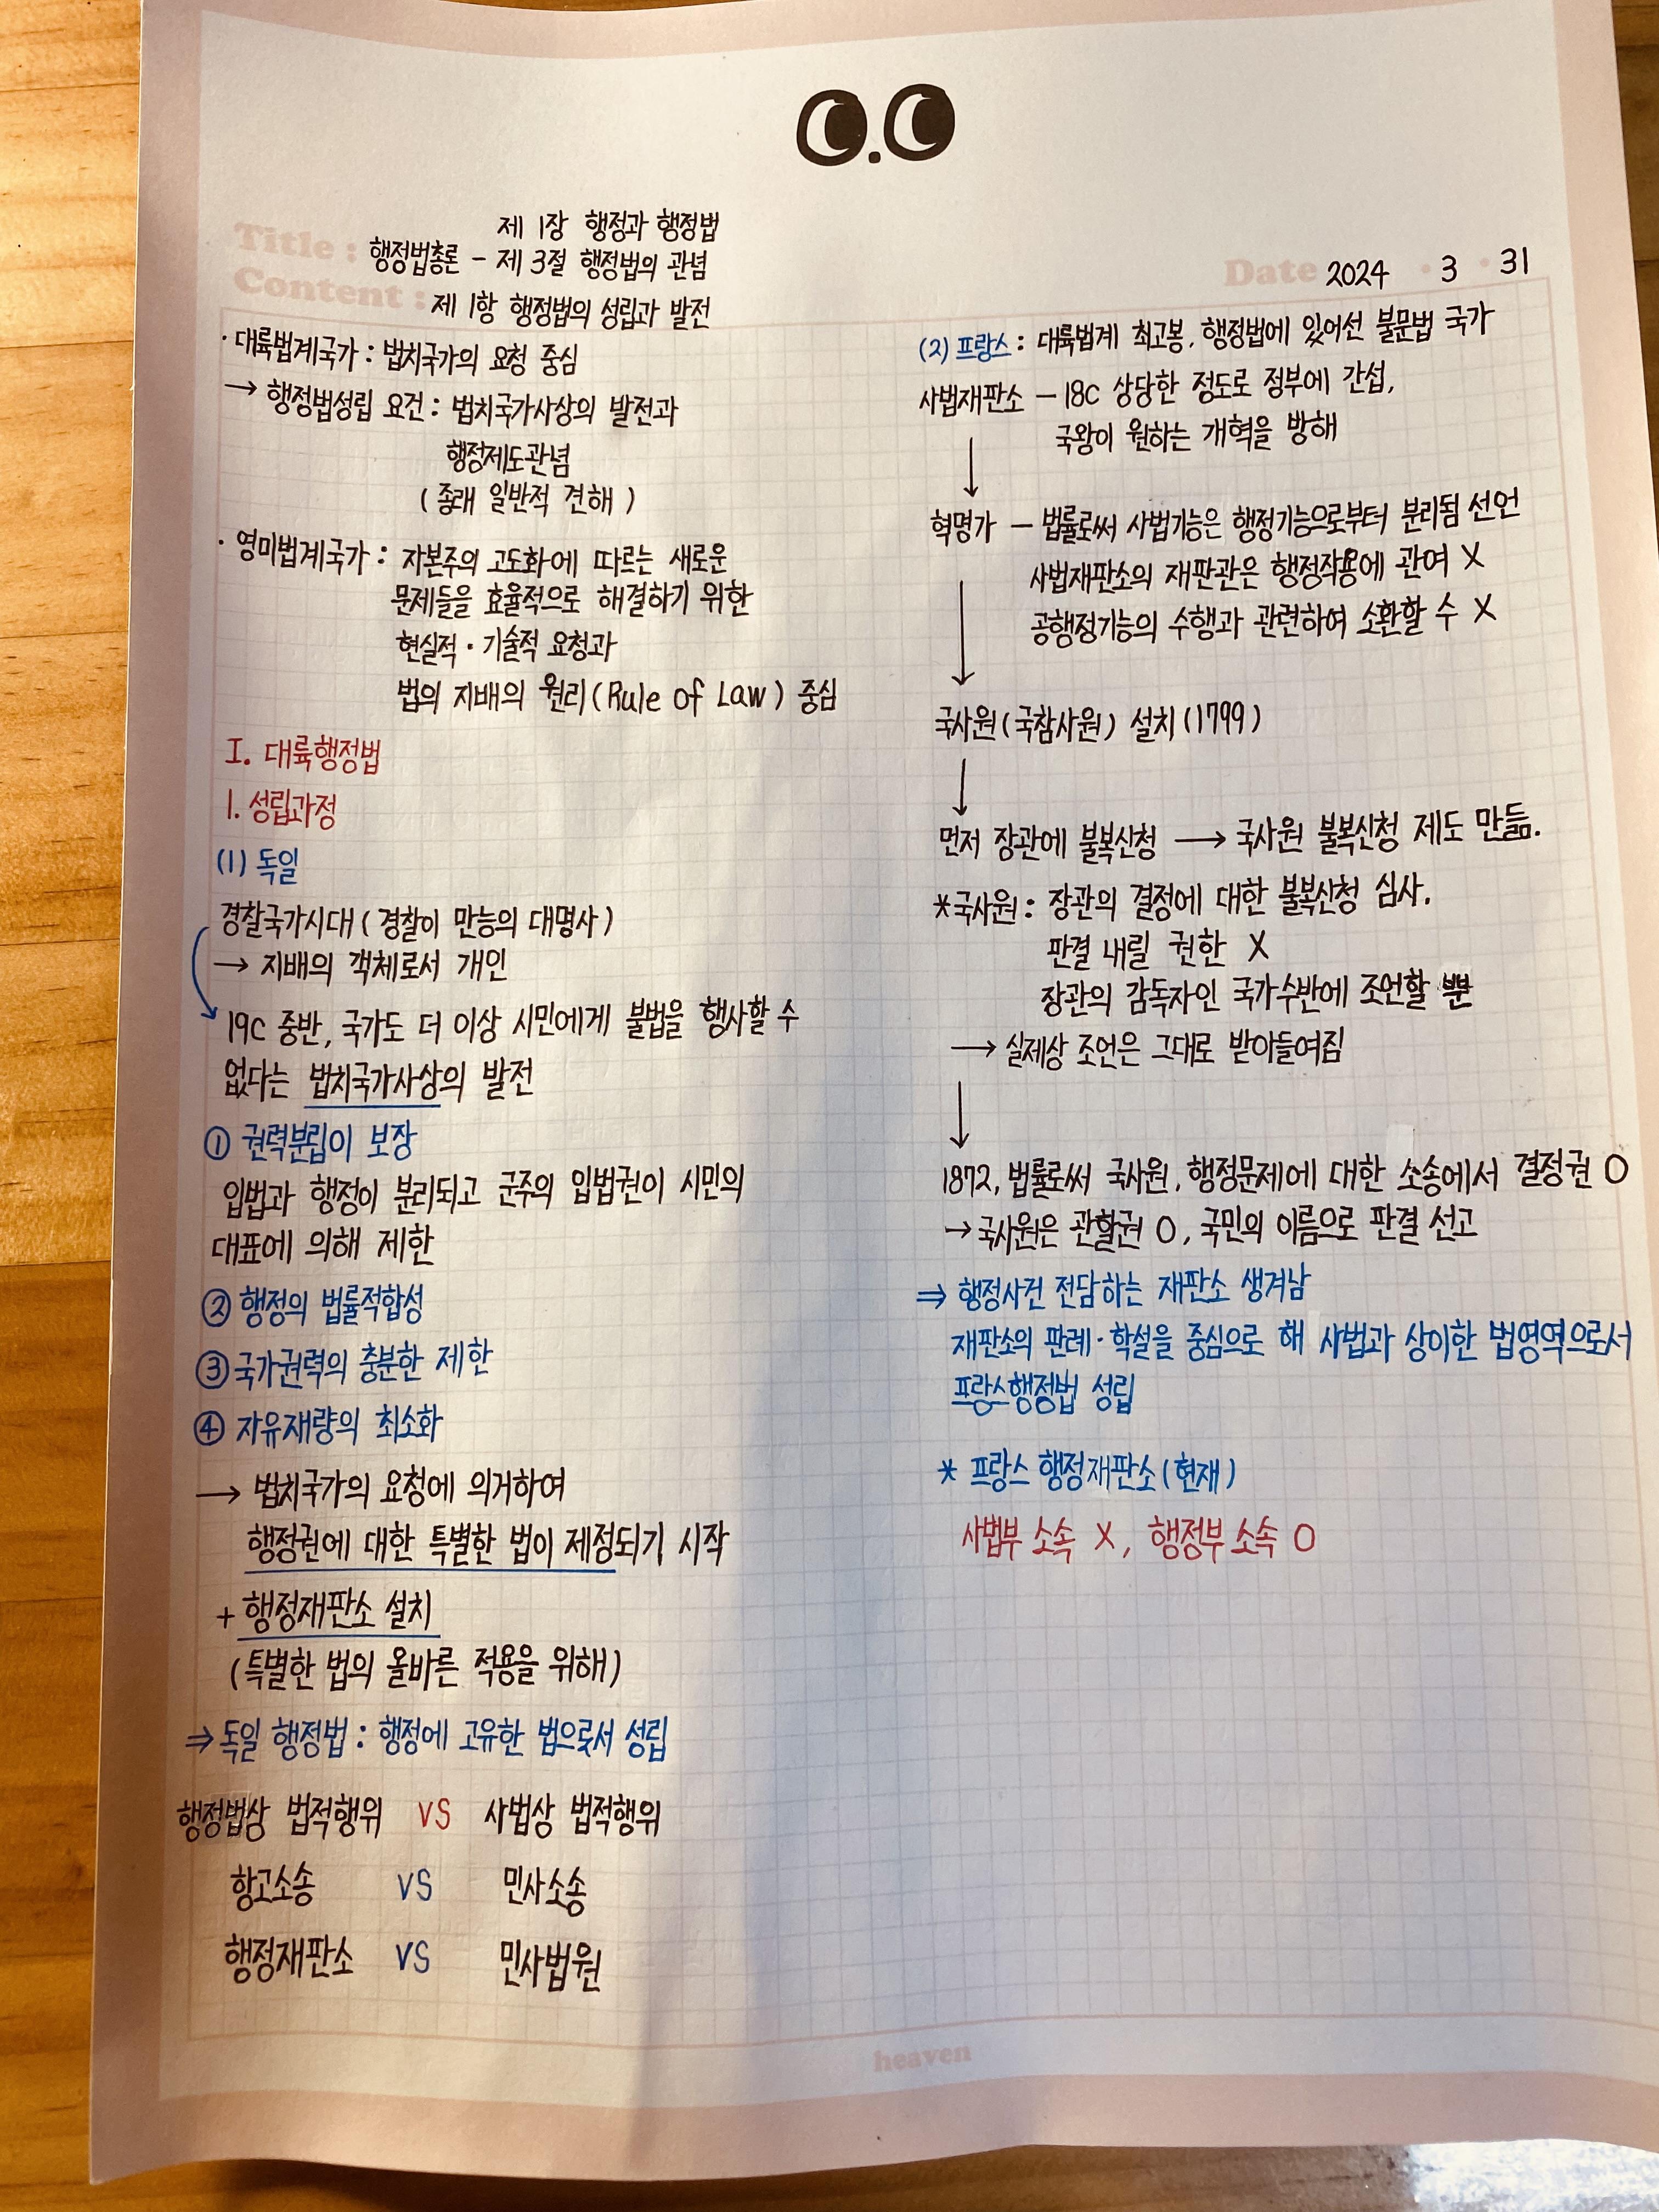 제 1장 행정과 행정법
Title : 행정법총론 - 제 3절 행정법의 관념
Content : 제 1항 행정법의 성립과 발전
Date 2024 · 3 · 31
· 대륙법계국가 : 법치국가의 요청 중심
→ 행정법성립 요건 : 법치국가사상의 발전과
행정제도관념
( 종래 일반적 견해 )
· 영미법계국가 : 자본주의 고도화에 따르는 새로운
문제들을 효율적으로 해결하기 위한
현실적 · 기술적 요청과
법의 지배의 원리 (Rule of Law) 중심
I. 대륙행정법
1. 성립과정
(1) 독일
경찰국가시대 ( 경찰이 만능의 대명사 )
→ 지배의 객체로서 개인
19C 중반, 국가도 더 이상 시민에게 불법을 행사할 수
없다는 법치국가사상의 발전
① 권력분립이 보장
입법과 행정이 분리되고 군주의 입법권이 시민의
대표에 의해 제한
② 행정의 법률적합성
③ 국가권력의 충분한 제한
④ 자유재량의 최소화
→ 법치국가의 요청에 의거하여
행정권에 대한 특별한 법이 제정되기 시작
+ 행정재판소 설치
(특별한 법의 올바른 적용을 위해)
⇒ 독일 행정법 : 행정에 고유한 법으로서 성립
행정법상 법적행위 VS 사법상 법적행위
항고소송 VS 민사소송
행정재판소 VS 민사법원
(2) 프랑스 : 대륙법계 최고봉, 행정법에 있어선 불문법 국가
사법재판소 - 18C 상당한 정도로 정부에 간섭,
국왕이 원하는 개혁을 방해
↓
혁명가 - 법률로써 사법기능은 행정기능으로부터 분리됨 선언
사법재판소의 재판관은 행정작용에 관여 X
공행정기능의 수행과 관련하여 소환할 수 X
↓
국사원 (국참사원) 설치 (1799)
↓
먼저 장관에 불복신청 → 국사원 불복신청 제도 만듦.
*국사원 : 장관의 결정에 대한 불복신청 심사.
판결 내릴 권한 X
장관의 감독자인 국가수반에 조언할 뿐
→ 실제상 조언은 그대로 받아들여짐
↓
1872, 법률로써 국사원, 행정문제에 대한 소송에서 결정권 O
→ 국사원은 관할권 O, 국민의 이름으로 판결 선고
⇒ 행정사건 전담하는 재판소 생겨남
재판소의 판례 · 학설을 중심으로 해 사법과 상이한 법영역으로서
프랑스행정법 성립
* 프랑스 행정재판소 (현재)
사법부 소속 X, 행정부 소속 O
heaven